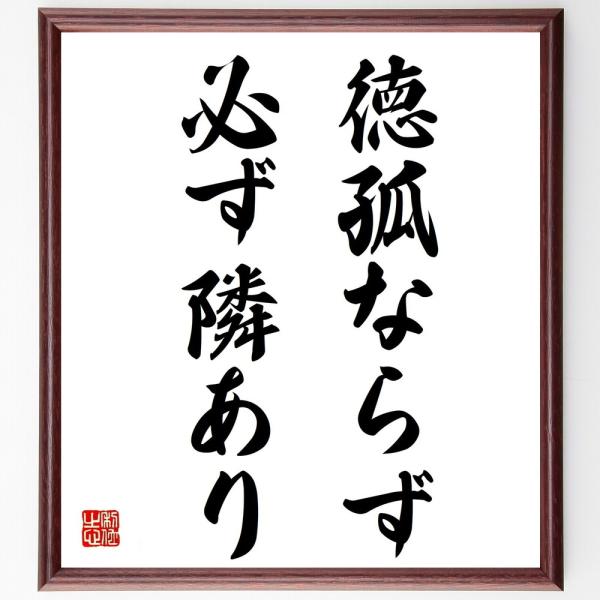 徳孤ならず
必ず隣あり